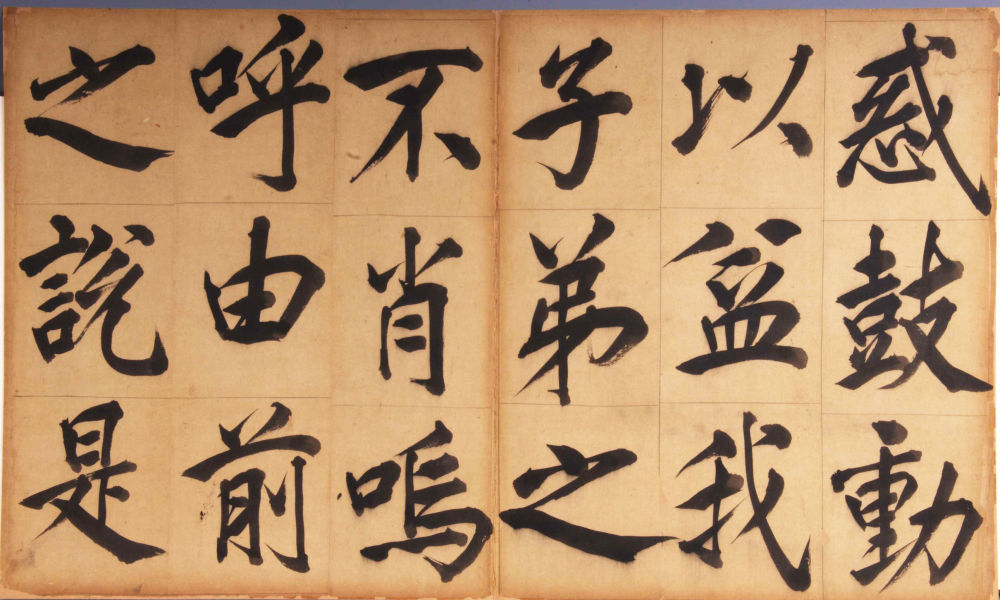 惑鼓動
以益我
子弟之
不肖嗚
呼由前
之説是